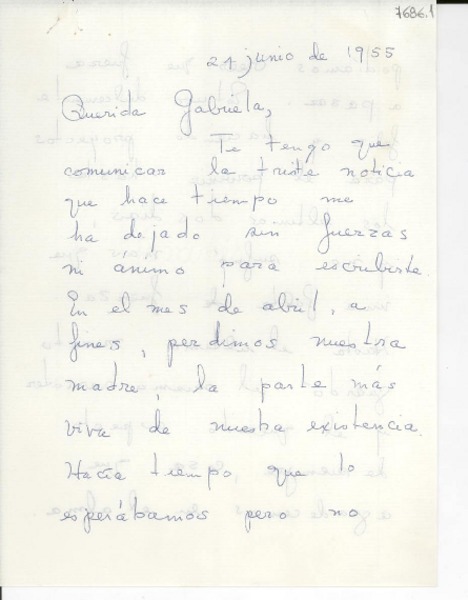 7686.1
24 junio de 1955
Querida Gabriela,
Te tengo que
comunicar la triste noticia
que hace tiempo me
ha dejado sin fuerzas
ni ánimo para escribirte.
En el mes de abril, a
fines, perdimos nuestra
madre, la parte más
viva de nuestra existencia.
Hacía tiempo, que lo
esperábamos pero no